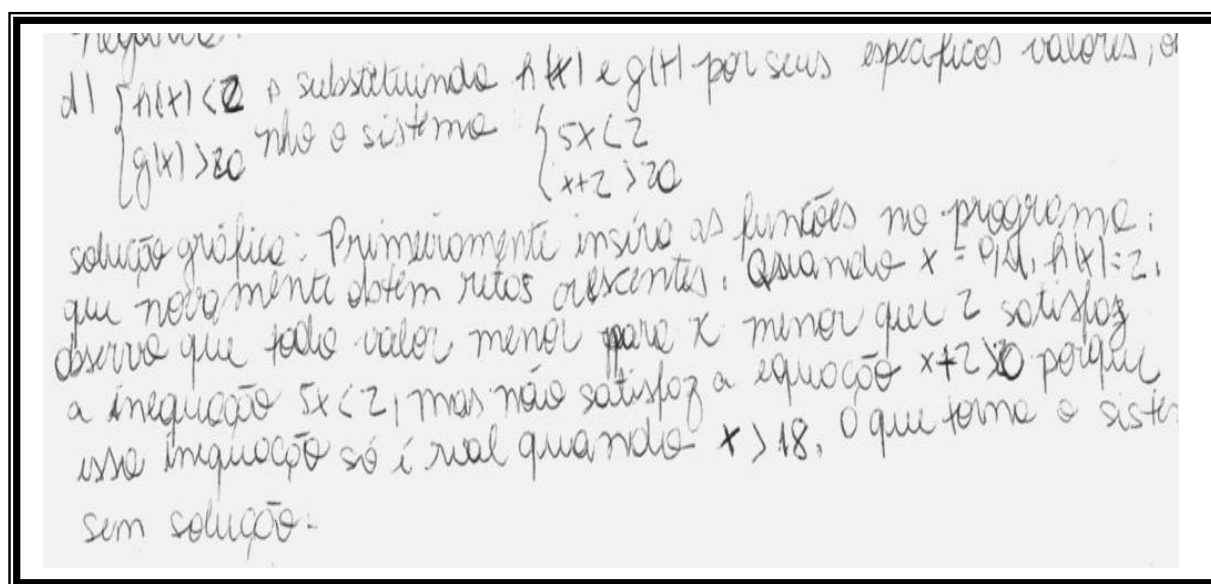 negativo.
d) { h(x) < 2 → substituindo h(x) e g(x) por seus especificos valores, o
{ g(x) > 20 nho o sistema { 5x < 2
{ x+2 > 20
solução gráfica: Primeiramente insiro as funções no programa;
que novamente obtém retas crescentes. Quando x = 0,4, h(x) = 2,
observo que todo valor menor para x menor que 2 satisfaz
a inequação 5x < 2, mas não satisfaz a equação x+2 > 20 porque
essa inequação só é real quando x > 18, o que torna o siste
sem solução.